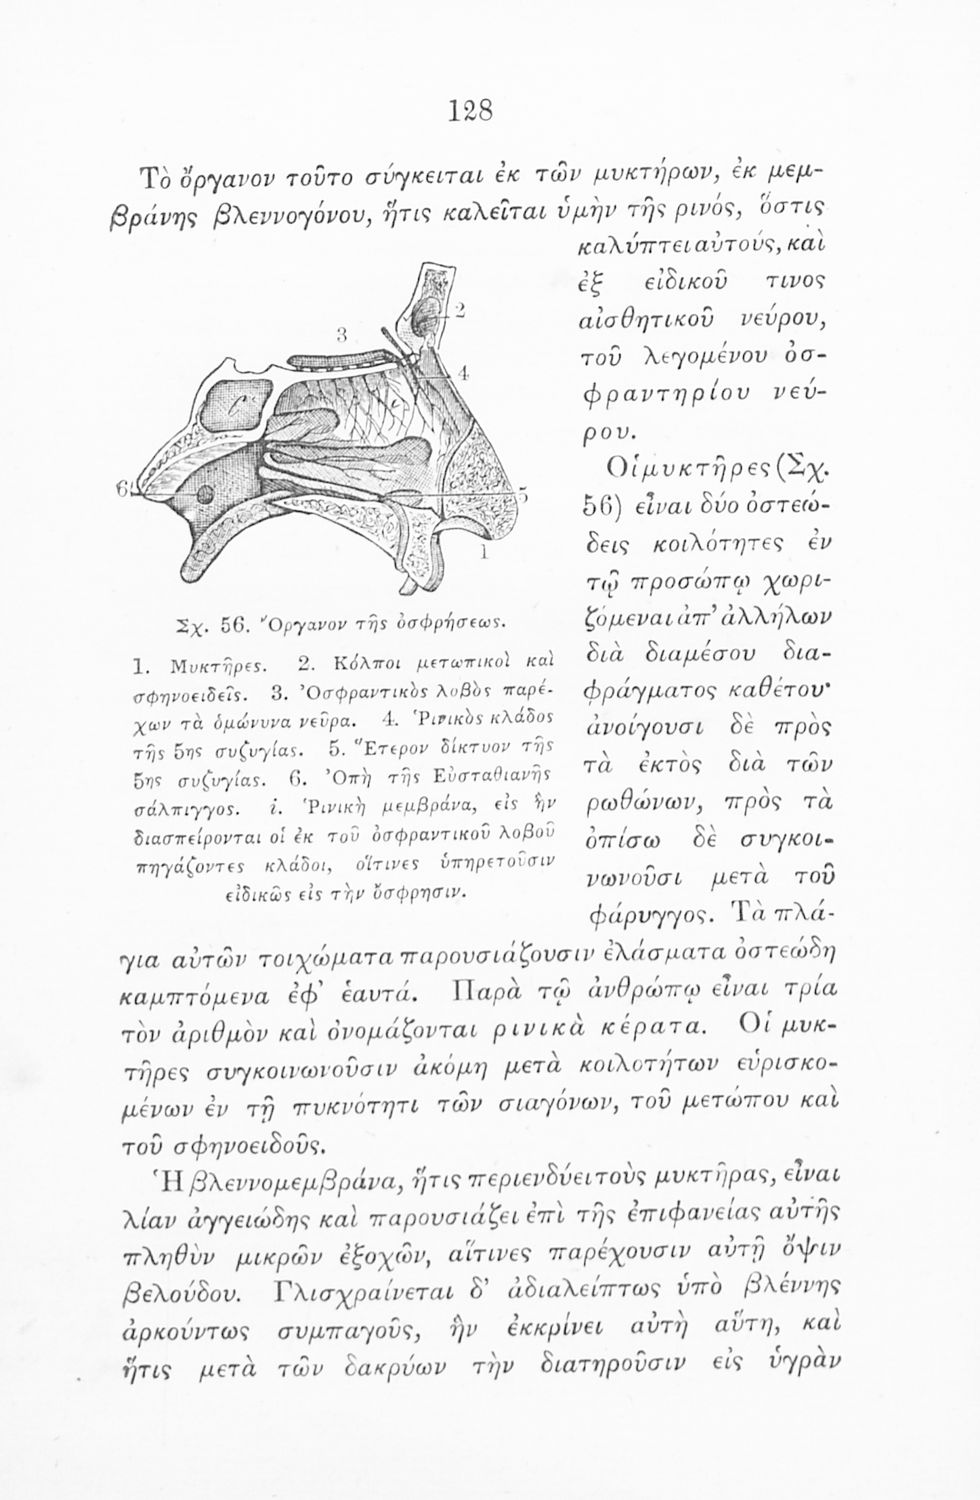 128
Τὸ ὄργανον τοῦτο σύγκειται ἐκ τῶν μυκτήρων, ἐκ μεμ-
βράνης βλεννογόνου, ἥτις καλεῖται ὑμὴν τῆς ρινός, ὅστις
καλύπτει αὐτούς, καὶ
ἐξ εἰδικοῦ τινος
αἰσθητικοῦ νεύρου,
τοῦ λεγομένου ὀσ-
φραντηρίου νεύ-
ρου.
Οἱ μυκτῆρες (Σχ.
56) εἶναι δύο ὀστεώ-
δεις κοιλότητες ἐν
τῷ προσώπῳ χωρι-
ζόμεναι ἀπ' ἀλλήλων
διὰ διαμέσου δια-
φράγματος καθέτου·
ἀνοίγουσι δὲ πρὸς
τὰ ἐκτὸς διὰ τῶν
ρωθώνων, πρὸς τὰ
ὀπίσω δὲ συγκοι-
νωνοῦσι μετὰ τοῦ
φάρυγγος. Τὰ πλά-
3
2
4
6
5
1
Σχ. 56. Ὄργανον τῆς ὀσφρήσεως.
1. Μυκτῆρες. 2. Κόλποι μετωπικοὶ καὶ
σφηνοειδεῖς. 3. Ὀσφραντικὸς λοβὸς παρέ-
χων τὰ ὁμώνυνα νεῦρα. 4. Ῥινικὸς κλάδος
τῆς 5ης συζυγίας. 5. Ἕτερον δίκτυον τῆς
5ης συζυγίας. 6. Ὀπὴ τῆς Εὐσταθιανῆς
σάλπιγγος. i. Ῥινικὴ μεμβράνα, εἰς ἣν
διασπείρονται οἱ ἐκ τοῦ ὀσφραντικοῦ λοβοῦ
πηγάζοντες κλάδοι, οἵτινες ὑπηρετοῦσιν
εἰδικῶς εἰς τὴν ὄσφρησιν.
για αὐτῶν τοιχώματα παρουσιάζουσιν ἐλάσματα ὀστεώδη
καμπτόμενα ἐφ' ἑαυτά. Παρὰ τῷ ἀνθρώπῳ εἶναι τρία
τὸν ἀριθμὸν καὶ ὀνομάζονται ρινικὰ κέρατα. Οἱ μυκ-
τῆρες συγκοινωνοῦσιν ἀκόμη μετὰ κοιλοτήτων εὑρισκο-
μένων ἐν τῇ πυκνότητι τῶν σιαγόνων, τοῦ μετώπου καὶ
τοῦ σφηνοειδοῦς.
Ἡ βλεννομεμβράνα, ἥτις περιενδύει τοὺς μυκτῆρας, εἶναι
λίαν ἀγγειώδης καὶ παρουσιάζει ἐπὶ τῆς ἐπιφανείας αὐτῆς
πληθὺν μικρῶν ἐξοχῶν, αἵτινες παρέχουσιν αὐτῇ ὄψιν
βελούδου. Γλισχραίνεται δ' ἀδιαλείπτως ὑπὸ βλέννης
ἀρκούντως συμπαγοῦς, ἣν ἐκκρίνει αὐτὴ αὕτη, καὶ
ἥτις μετὰ τῶν δακρύων τὴν διατηροῦσιν εἰς ὑγρὰν